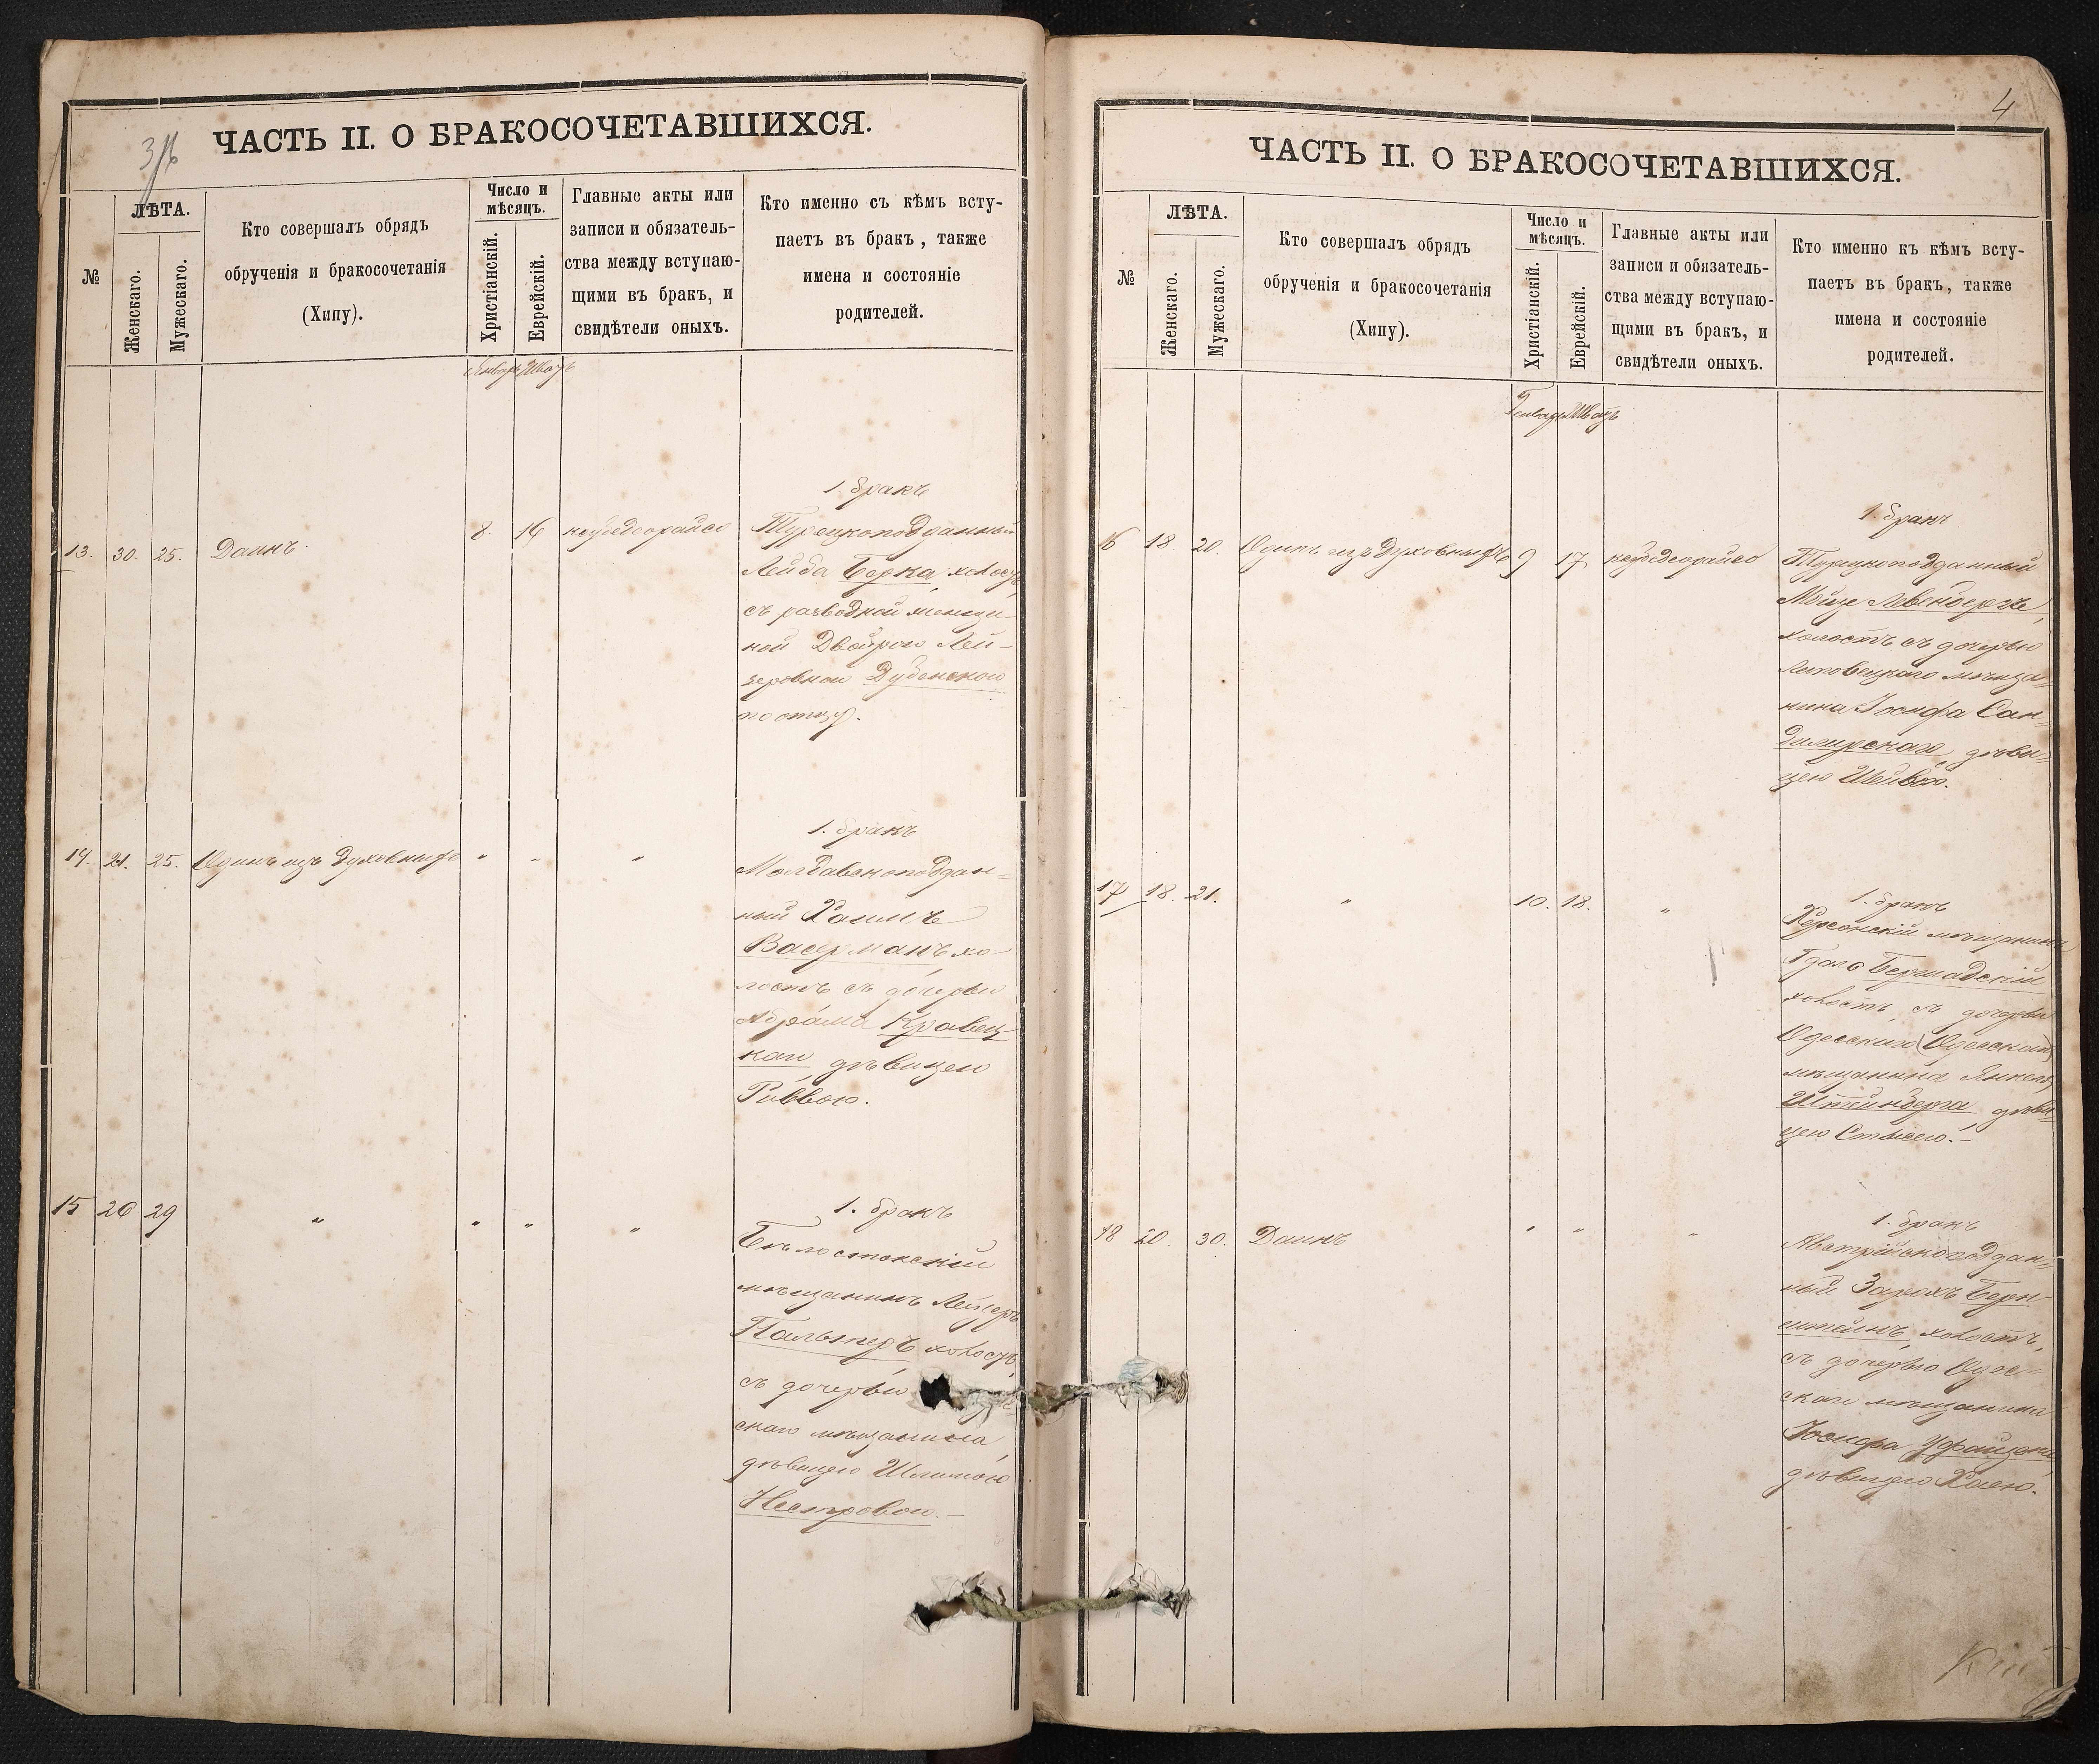 ЧАСТЬ II. О БРАКОСОЧЕТАВШИХСЯ.
№
ЛѢТА.
Женскаго.
Мужескаго.
Кто совершалъ обрядъ
обрученія и бракосочетанія
(Хипу).
Число и
мѣсяцъ.
Христіанскій.
Еврейскій.
Главные акты или
записи и обязатель-
ства между вступаю-
щими въ бракъ, и
свидѣтели оныхъ.
Кто именно съ кѣмъ всту-
паетъ въ бракъ, также
имена и состояніе
родителей.
13. 30. 25. Даинъ. 8. 16
1. бракъ
Турецкоподданный
Лейба Берка, холостъ,
съ разводной женщи-
ной Двойрою Лей-
зеровною Дубенскою
по отцу.
14. 21. 25. Одинъ изъ Духовныхъ " " "
1. бракъ
Молдавскоподдан=
ный Хаимъ
Васерманъ хо-
лостъ съ дочерью
Абрама Кравец-
каго дѣвицею
Ривкою.
15 26 29 " " " "
1. бракъ
Бѣлостокскій
мѣщанинъ Лейзеръ
Пальтеръ холостъ,
съ дочерью
скаго мѣщанина
дѣвицею
ЧАСТЬ II. О БРАКОСОЧЕТАВШИХСЯ.
4
№
ЛѢТА.
Женскаго.
Мужескаго.
Кто совершалъ обрядъ
обрученія и бракосочетанія
(Хипу).
Число и
мѣсяцъ.
Христіанскій.
Еврейскій.
Главные акты или
записи и обязатель-
ства между вступаю-
щими въ бракъ, и
свидѣтели оныхъ.
Кто именно къ кѣмъ всту-
паетъ въ бракъ, также
имена и состояніе
родителей.
16 18. 20. Одинъ изъ Духовныхъ 9 17
1. бракъ
Турецкоподданный
холостъ съ дочерью
Липовецкаго мѣща=
нина Іосифа Сан=
дѣви=
цею
17 18. 21. " 10. 18. "
1. бракъ
Херсонскій мѣщанинъ
Бершадскій
холостъ, съ дочерью
Одесскаго
мѣщанина Янкеля
Штейнберга, дѣви=
цею
18 20. 30. Даинъ " " "
1. бракъ
Австрійскоподдан=
ный Берн-
штейнъ, холостъ,
съ дочерью Одес-
скаго мѣщанина
Іосифа
дѣвицею Хаею.